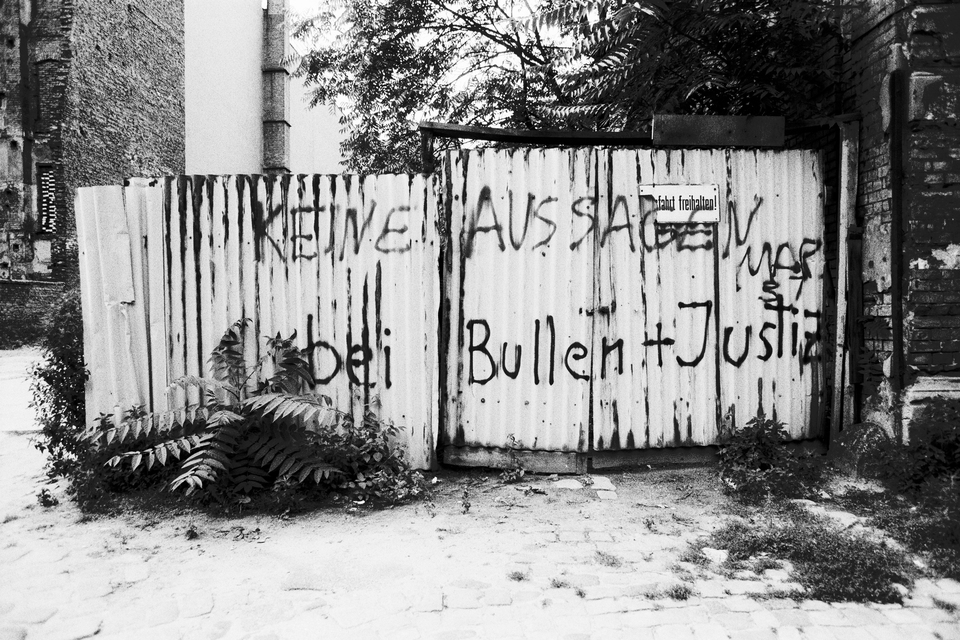 KEINE AUSSAGEN
fahrt freihalten!
bei Bullen + Justiz